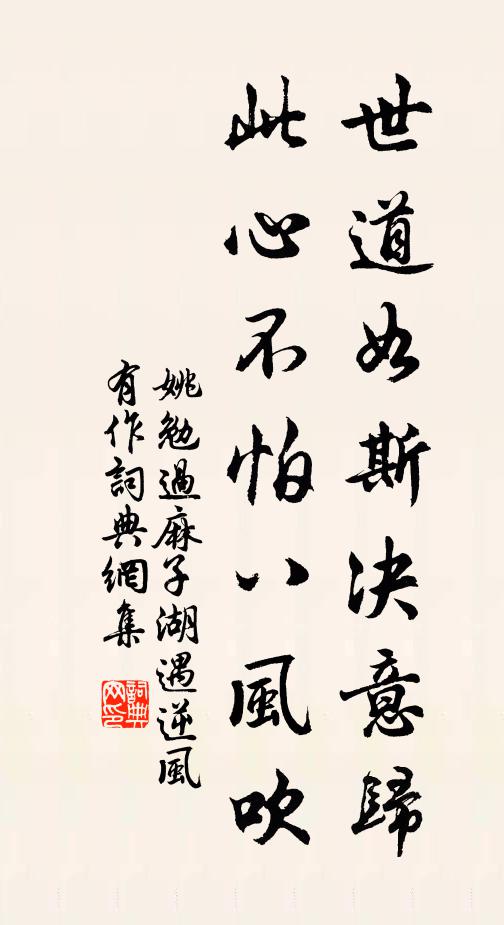 世道如斯決意歸
此心不怕八風吹
姚勉過麻子湖遇逆風
有作詞典網集
詞典网印